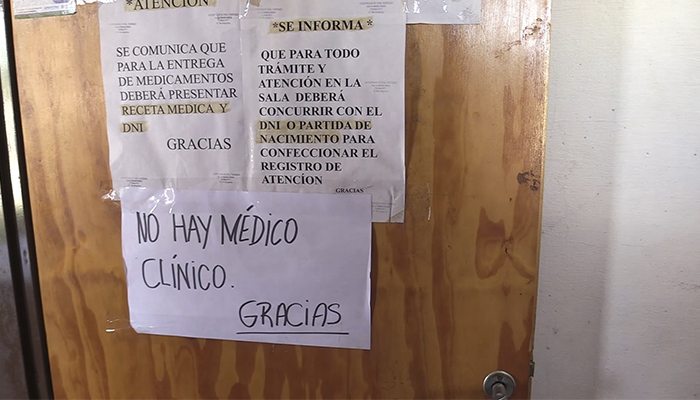 *ATENCIÓN*
SE COMUNICA QUE
PARA LA ENTREGA
DE MEDICAMENTOS
DEBERÁ PRESENTAR
RECETA MEDICA Y
DNI
GRACIAS
*SE INFORMA*
QUE PARA TODO
TRÁMITE Y
ATENCIÓN EN LA
SALA DEBERÁ
CONCURRIR CON EL
DNI O PARTIDA DE
NACIMIENTO PARA
CONFECCIONAR EL
REGISTRO DE
ATENCÍON
GRACIAS
NO HAY MÉDICO
CLÍNICO.
GRACIAS